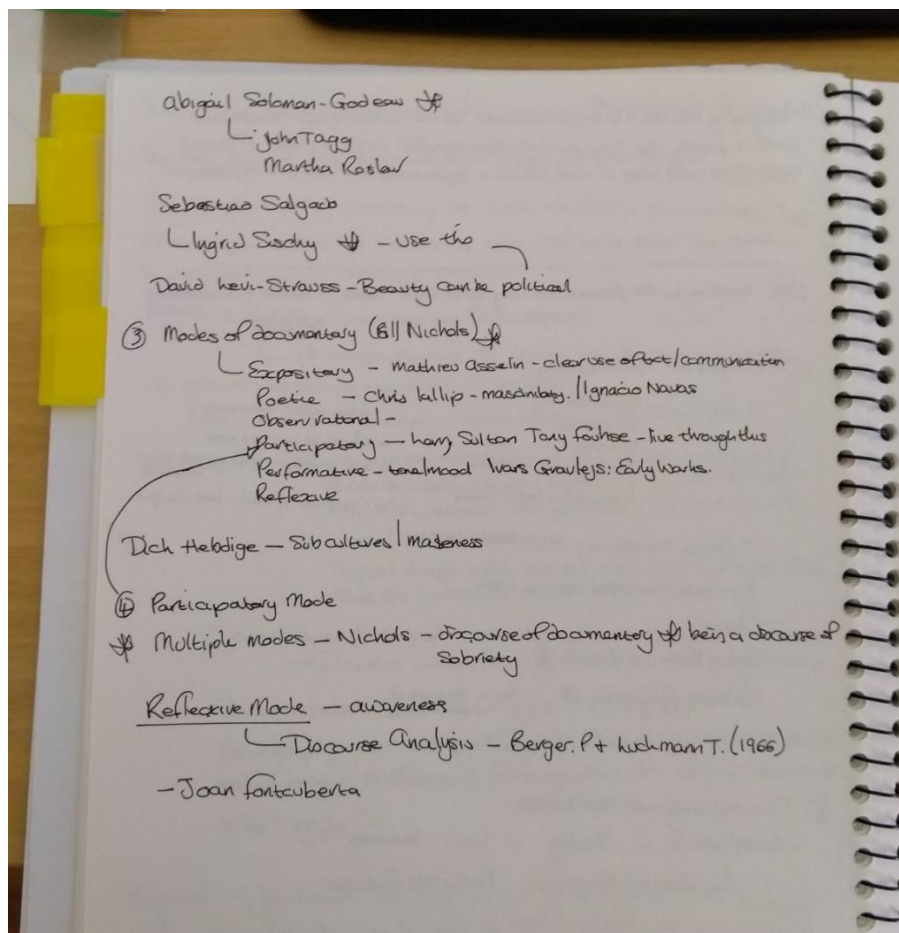 Abigail Soloman-Godeau
John Tagg
Martha Roslar
Sebastiao Salgado
Ingrid Sischy - use tho
David Levi-Strauss - Beauty can be political
③ Modes of documentary (Bill Nichols)
Expository - Mathieu Asselin - clear use of text/communication
Poetic - Chris Killip - masculinity. / Ignacio Navas
Observational -
Participatory - Larry Sultan Tony Fouhse - live through this
Performative - tone/mood Ivars Gravlejs: Early Works.
Reflexive
Dick Hebdige - Subcultures /
④ Participatory Mode
Multiple modes - Nichols - discourse of documentary being a discourse of
Sobriety
Reflexive Mode - awareness
Discourse Analysis - Berger. P + Luckmann T. (1966)
- Joan Fontcuberta